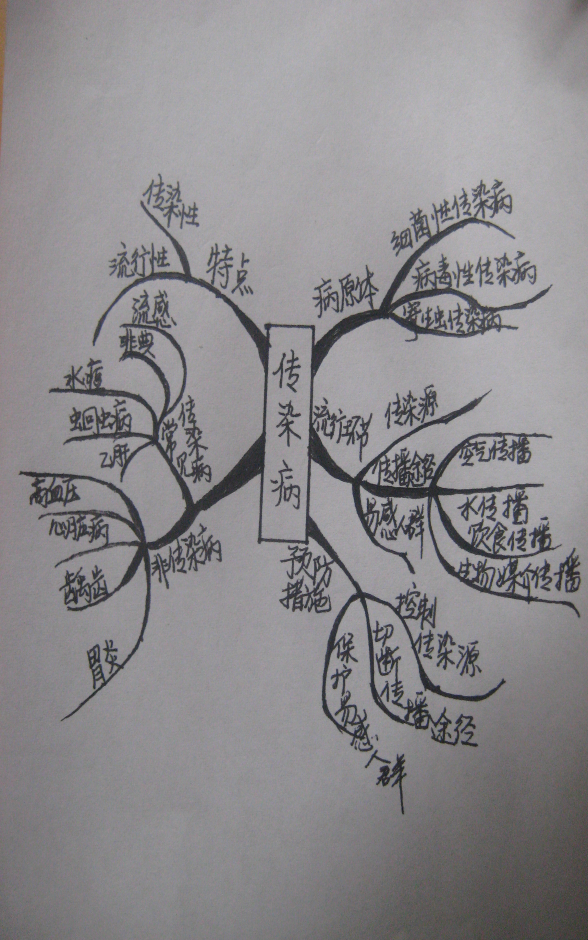 传染病
特点
传染性
流行性
病原体
细菌性传染病
病毒性传染病
寄生虫传染病
流行环节
传染源
传播途径
空气传播
水传播
饮食传播
生物媒介传播
易感人群
预防措施
控制传染源
切断传播途径
保护易感人群
常见传染病
流感
非典
水痘
蛔虫病
乙肝
非传染病
高血压
心脏病
龋齿
胃炎